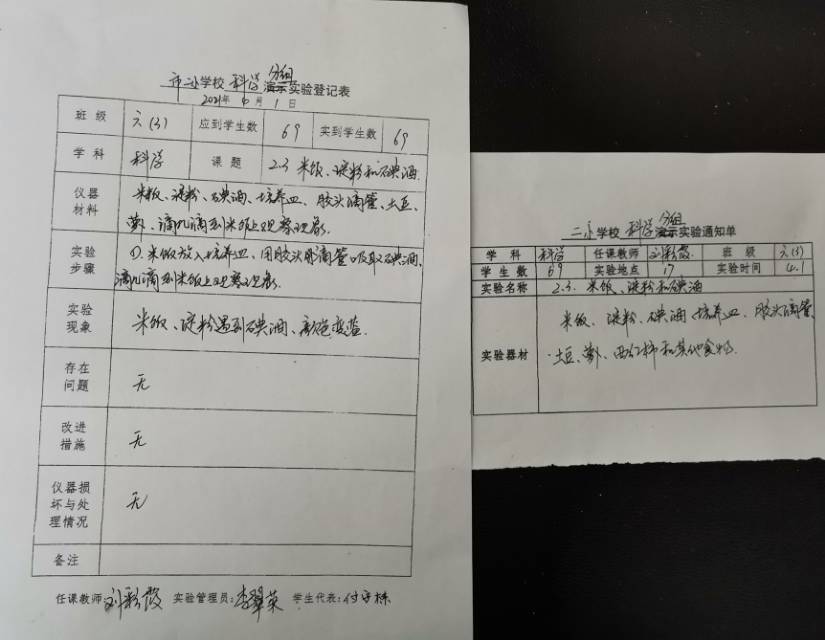 市二小学校 科学 分组 演示实验登记表
2021年 4月 1日
班级 六(3) 应到学生数 69 实到学生数 69
学科 科学 课题 2.3 米饭、淀粉和碘酒
仪器材料 米饭、淀粉、碘酒、培养皿、胶头滴管、土豆、
滴几滴到米饭上观察现象.
实验步骤 ①米饭放入培养皿,用胶头滴管吸取碘酒,
滴几滴到米饭上观察现象.
实验现象 米饭、淀粉遇到碘酒、颜色变蓝.
存在问题 无
改进措施 无
仪器损坏与处理情况 无
备注
任课教师:刘彩霞 实验管理员:李翠英 学生代表:付宇栋
二小学校 科学 分组 演示实验通知单
学科 科学 任课教师 刘彩霞 班级 六(3)
学生数 69 实验地点 17 实验时间 4.1
实验名称 2.3. 米饭、淀粉和碘酒
实验器材 米饭、淀粉、碘酒 培养皿、胶头滴管
土豆、西红柿和其他食物.